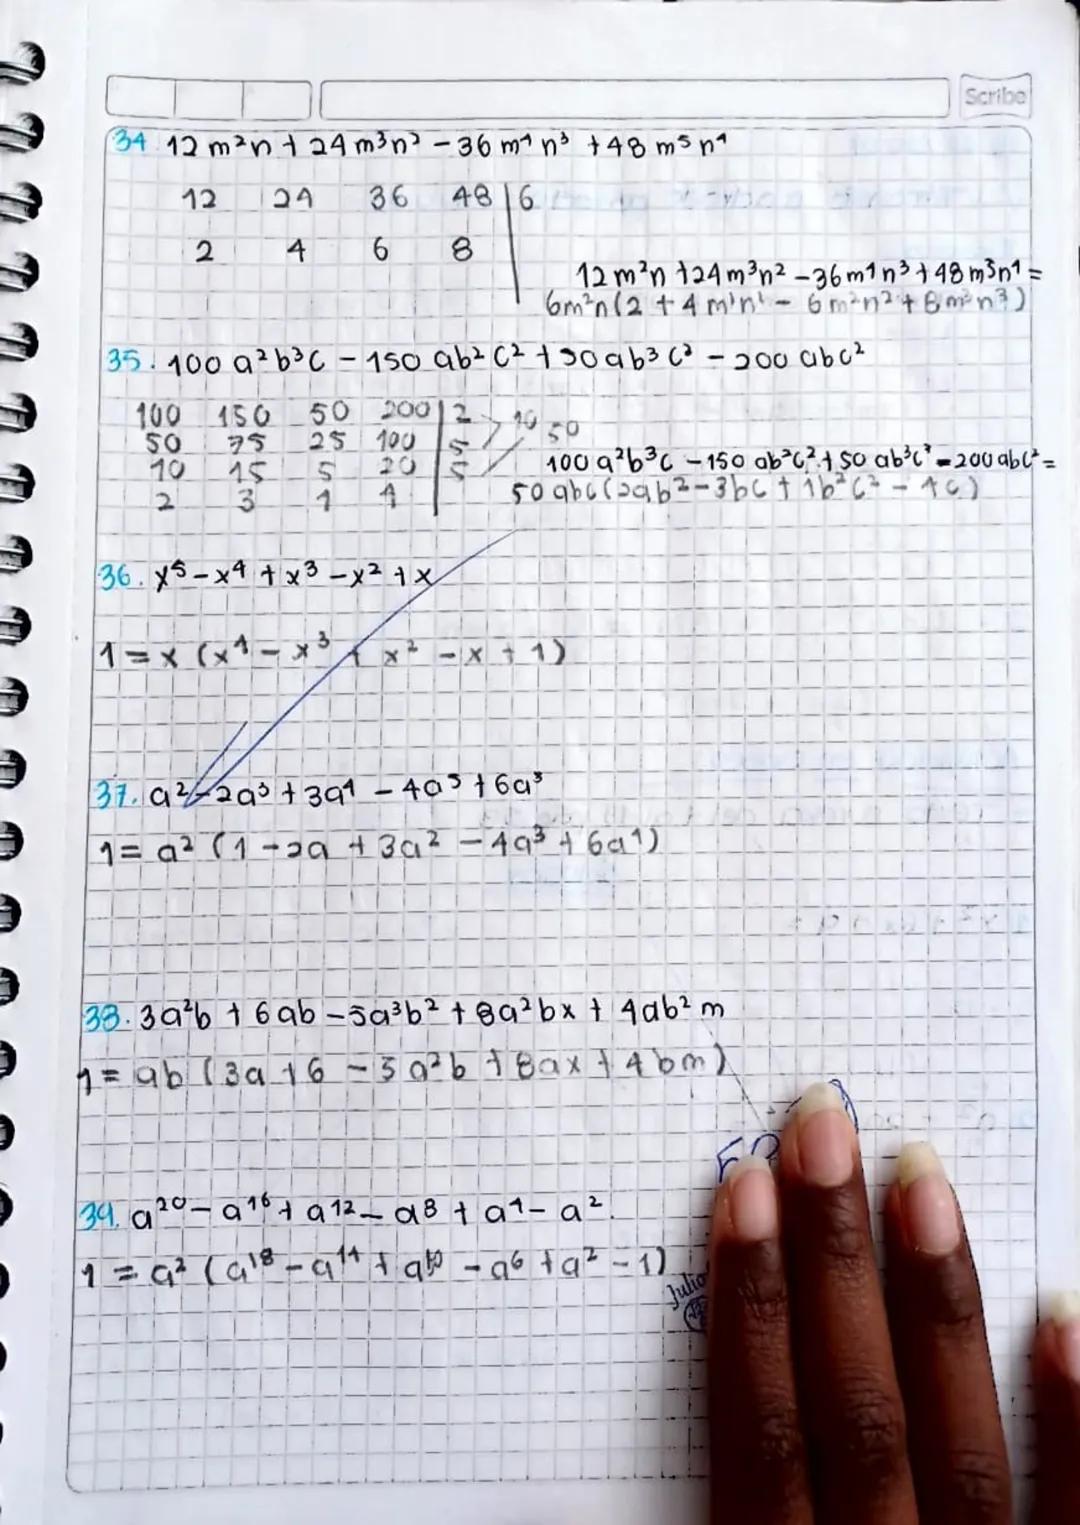 Scribe
34 12 m²n + 24 m³n² - 36 m⁴ n³ + 48 m⁵ n⁴
12 24 36 48 | 6
2 4 6 8
12 m²n + 24 m³n² - 36 m⁴ n³ + 48 m⁵n⁴ =
6m²n (2 + 4 m¹n¹ - 6 m²n² + 8 m³ n³)
35. 100 a²b³c - 150 ab² c² + 50 ab³ c³ - 200 abc²
100 150 50 200 | 2
50 75 25 100 | 5 10 50
10 15 5 20 | 5
2 3 1 4
100 a²b³c - 150 ab²c² + 50 ab³c³ - 200 abc² =
50 abc (2ab² - 3bc + 1b²c² - 4c)
36. x⁵ - x⁴ + x³ - x² + x
1 = x (x⁴ - x³ + x² - x + 1)
37. a² - 2a³ + 3a⁴ - 4a⁵ + 6a⁵
1 = a² (1 - 2a + 3a² - 4a³ + 6a⁴)
38. 3a²b + 6ab - 5a³b² + 8a²bx + 4ab² m
1 = ab (3a + 6 - 5 a²b + 8ax + 4 bm)
39. a²⁰ - a¹⁶ + a¹² - a⁸ + a⁴ - a².
1 = a² (a¹⁸ - a¹⁴ + a¹⁰ - a⁶ + a² - 1)